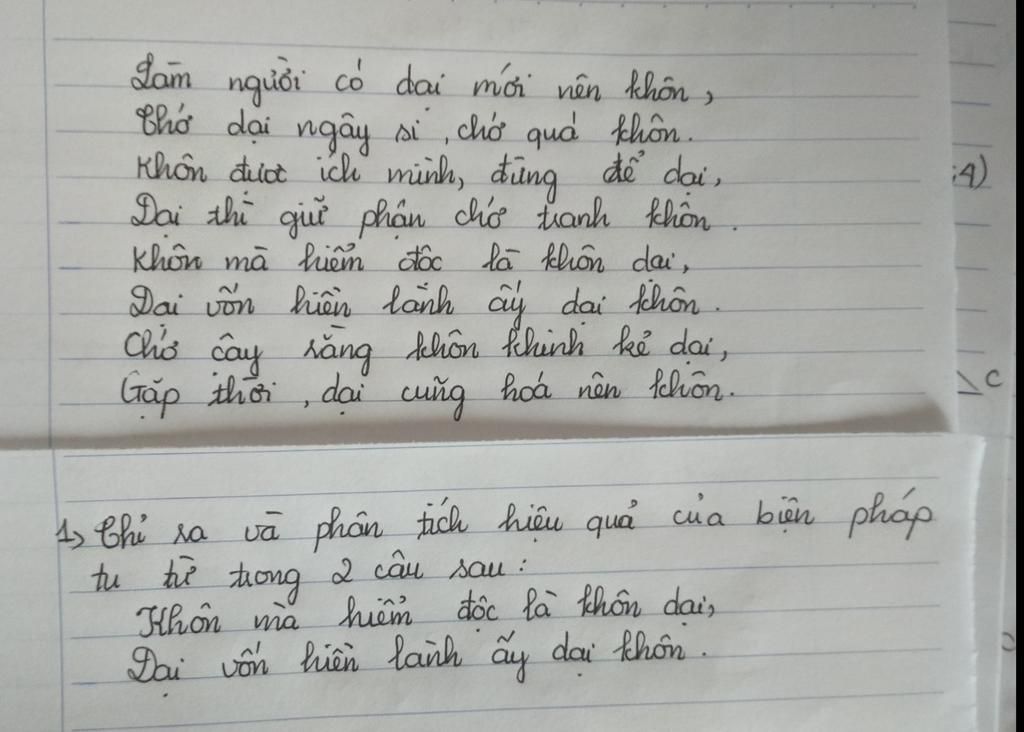 Làm người có dại mới nên khôn,
Chớ dại ngây si, chớ quá khôn.
Khôn được ích mình, đừng để dại,
Dại thì giữ phận chớ tranh khôn.
Khôn mà hiểm độc là khôn dại,
Dại vốn hiền lành ấy dại khôn.
Chớ cậy rằng khôn khinh kẻ dại,
Gặp thời, dại cũng hoá nên khôn.
:4)
c
1) Chỉ ra và phân tích hiệu quả của biện pháp
tu từ trong 2 câu sau:
Khôn mà hiểm độc là khôn dại,
Dại vốn hiền lành ấy dại khôn.